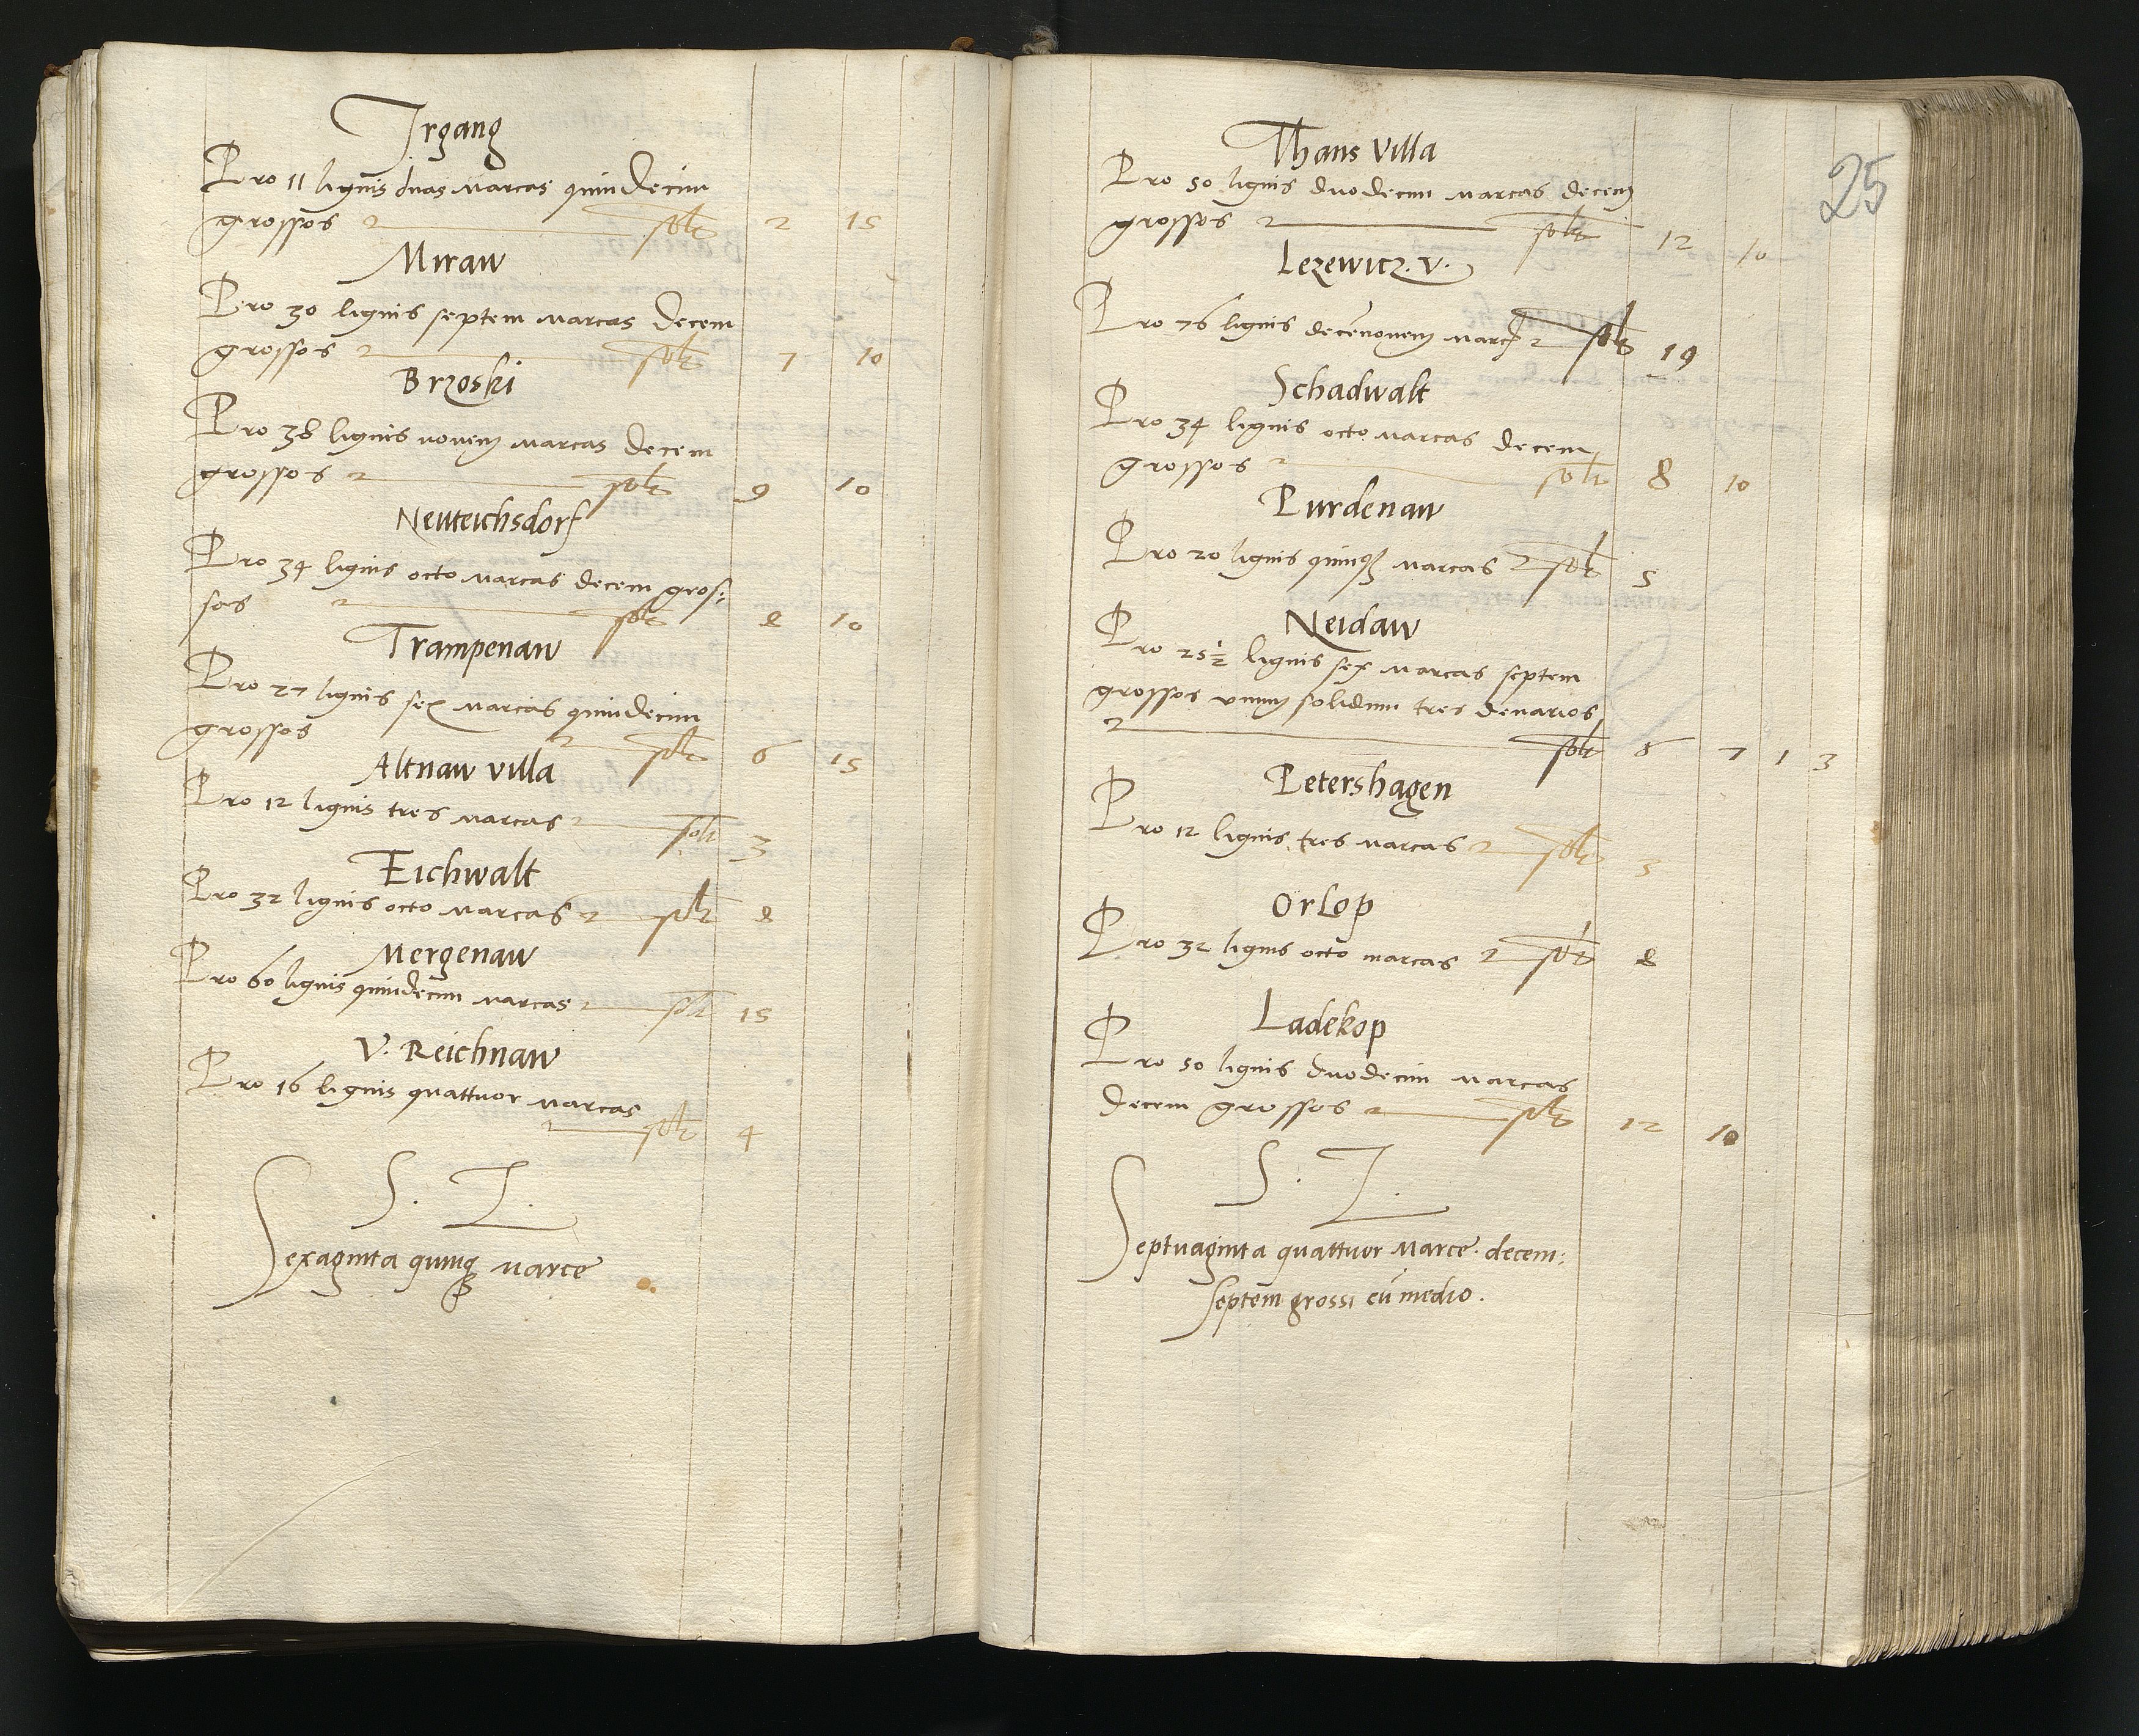 Irgang
Pro 11 lignis duas marcas quindecim
grossos solt 2 15
Miraw
Pro 30 lignis septem marcas decem
grossos solt 7 10
Brzoski
Pro 38 lignis novem marcas decem
grossos solt 9 10
Neuteichsdorf
Pro 34 lignis octo marcas decem gros:
sos solt 8 10
Trampenaw
Pro 27 lignis sex marcas quindecim
grossos solt 6 15
Altnaw villa
Pro 12 lignis tres marcas solt 3
Eichwalt
Pro 32 lignis octo marcas solt 8
Mergenaw
Pro 60 lignis quindecim marcas solt 15
V. Reichnaw
Pro 16 lignis quattuor marcas
solt 4
S. L.
Sexaginta quinq marce
25
Thans villa
Pro 50 lignis duodecim marcas decem
grossos solt 12 10
Lezewicz. v.
Pro 76 lignis decenovem marc solt 19
Schadwalt
Pro 34 lignis octo marcas decem
grossos solt 8 10
Purdenaw
Pro 20 lignis quinq marcas solt 5
Neidaw
Pro 25½ lignis sex marcas septem
grossos unum solidum tres denarios
solt 6 7 1 3
Petershagen
Pro 12 lignis tres marcas solt 3
Orlop
Pro 32 lignis octo marcas solt 8
Ladekop
Pro 50 lignis duodecim marcas
decem grossos solt 12 10
S. L.
Septuaginta quattuor marce decem:
septem grossi cū medio.